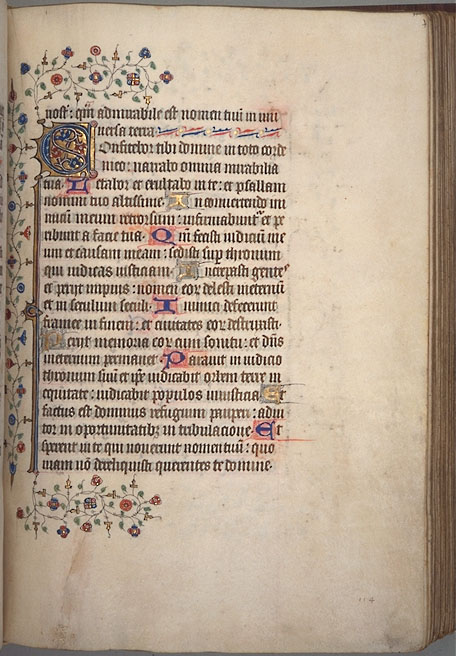 nost̄: qm̄ admirabile est nomen tuū in uni
uersa terra
Confitebor tibi domine in toto corde
meo: narrabo omnia mirabilia
tua. Letabor et exultabo in te: et psallam
nomini tuo altissime. In conuertendo ini
micū meum retrorsum: infirmabunt̄ et pe
ribunt a facie tua. Qm̄ fecisti iudiciū me
um et causam meam: sedisti sup̄ thronum
qui iudicas iusticiam. Increpasti gentes
et perijt impius: nomen eoꝝ delesti in eternū
et in seculum seculi. Inimici defecerunt
framee in finem: et ciuitates eoꝝ destruxisti.
Perijt memoria eoꝝ cum sonitu: et dn̄s
in eternum permanet. Parauit in iudicio
thronum suū et ip̄e iudicabit orbem terre in
equitate: iudicabit populos in iusticia. Et
factus est dominus refugium pauperi: adiu
tor in oportunitatibꝫ in tribulacione. Et
sperent in te qui nouerunt nomen tuū: quo
niam nō dereliquisti querentes te domine.
114